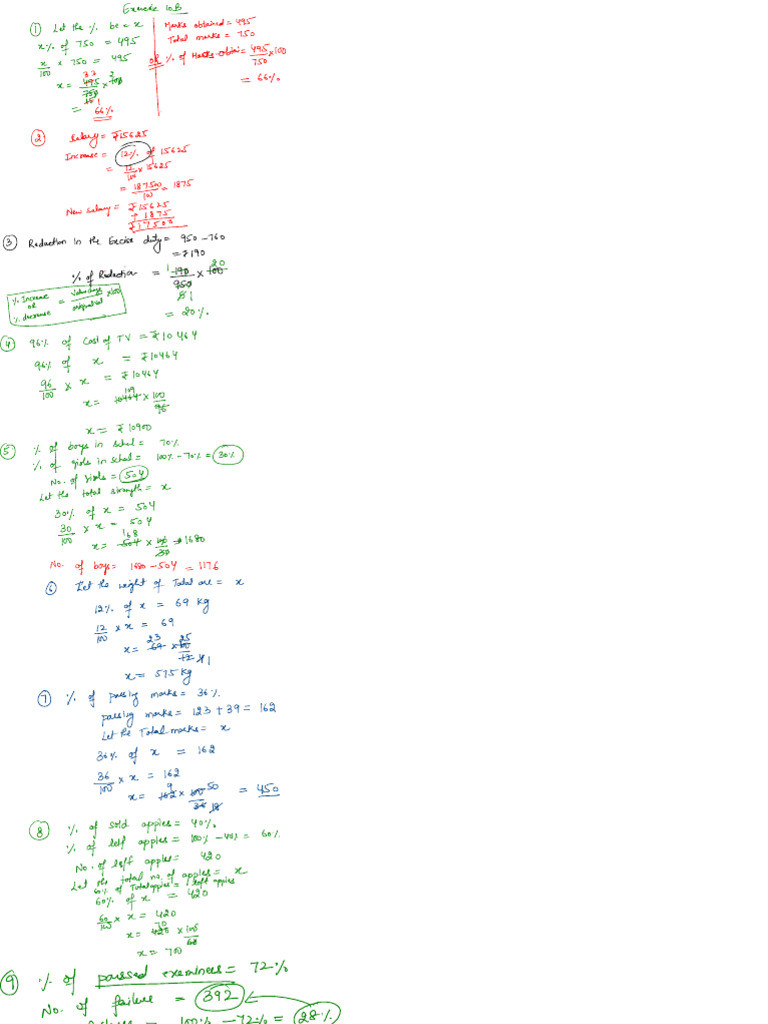 Exercise 10B
① Let the % be = x
x% of 750 = 495
x/100 × 750 = 495
x = 495/750 × 100
= 66%
Marks obtained = 495
Total marks = 750
OR % of Marks obtain = 495/750 × 100
= 66%
② Salary = ₹15625
Increase = 12% of 15625
= 12/100 × 15625
= 187500/100 = 1875
New Salary = ₹15625
+ 1875
₹17500
③ Reduction in the Excise duty = 950 - 760
= ₹190
% of Reduction = 190/950 × 100
= 20%
% Increase or % decrease = value/original × 100
④ 96% of Cost of TV = ₹10464
96% of x = ₹10464
96/100 × x = ₹10464
x = 10464 × 100/96
x = ₹10900
⑤ % of boys in school = 70%
% of girls in school = 100% - 70% = 30%
No. of girls = 504
Let the total strength = x
30% of x = 504
30/100 × x = 504
x = 504 × 100/30 = 1680
No. of boys = 1680 - 504 = 1176
⑥ Let the weight of Total ore = x
12% of x = 69 kg
12/100 × x = 69
x = 69 × 100/12
x = 575 kg
⑦ % of passing marks = 36%
passing marks = 123 + 39 = 162
Let the Total marks = x
36% of x = 162
36/100 × x = 162
x = 162 × 100/36 = 450
⑧ % of sold apples = 40%
% of left apples = 100% - 40% = 60%
No. of left apples = 420
Let the total no. of apples = x
60% of Total apples = left apples
60% of x = 420
60/100 × x = 420
x = 420 × 100/60
x = 700
⑨ % of passed examiners = 72%
No. of failure = 392
= 100% - 72% = 28%